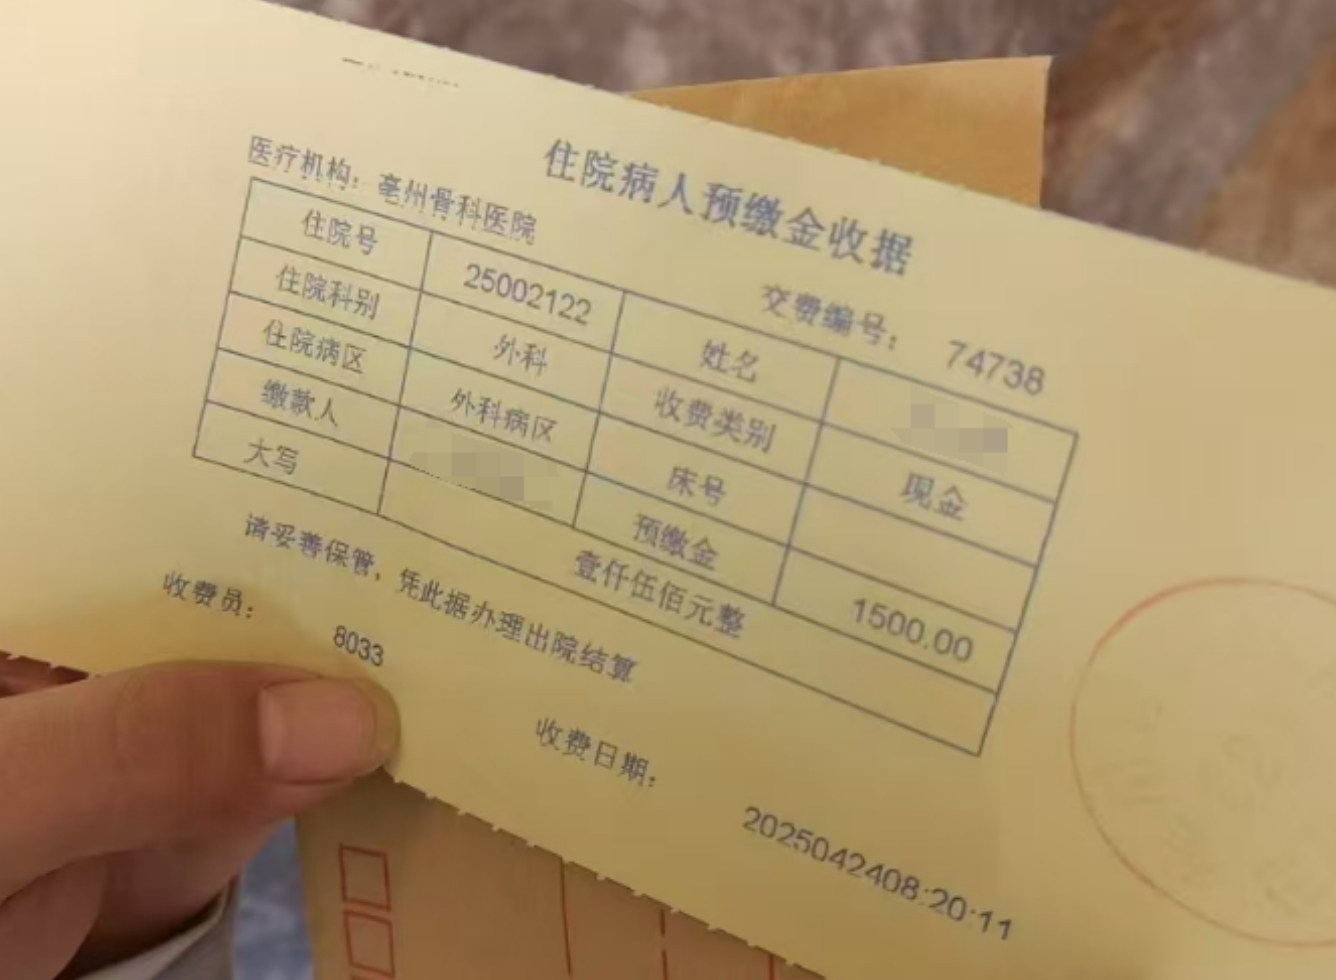 住院病人预缴金收据
医疗机构：亳州骨科医院
交费编号： 74738
住院号 25002122 姓名
住院科别 外科 收费类别 现金
住院病区 外科病区 床号
缴款人 预缴金 1500.00
大写 壹仟伍佰元整
请妥善保管，凭此据办理出院结算
收费员： 8033 收费日期： 2025042408:20:11